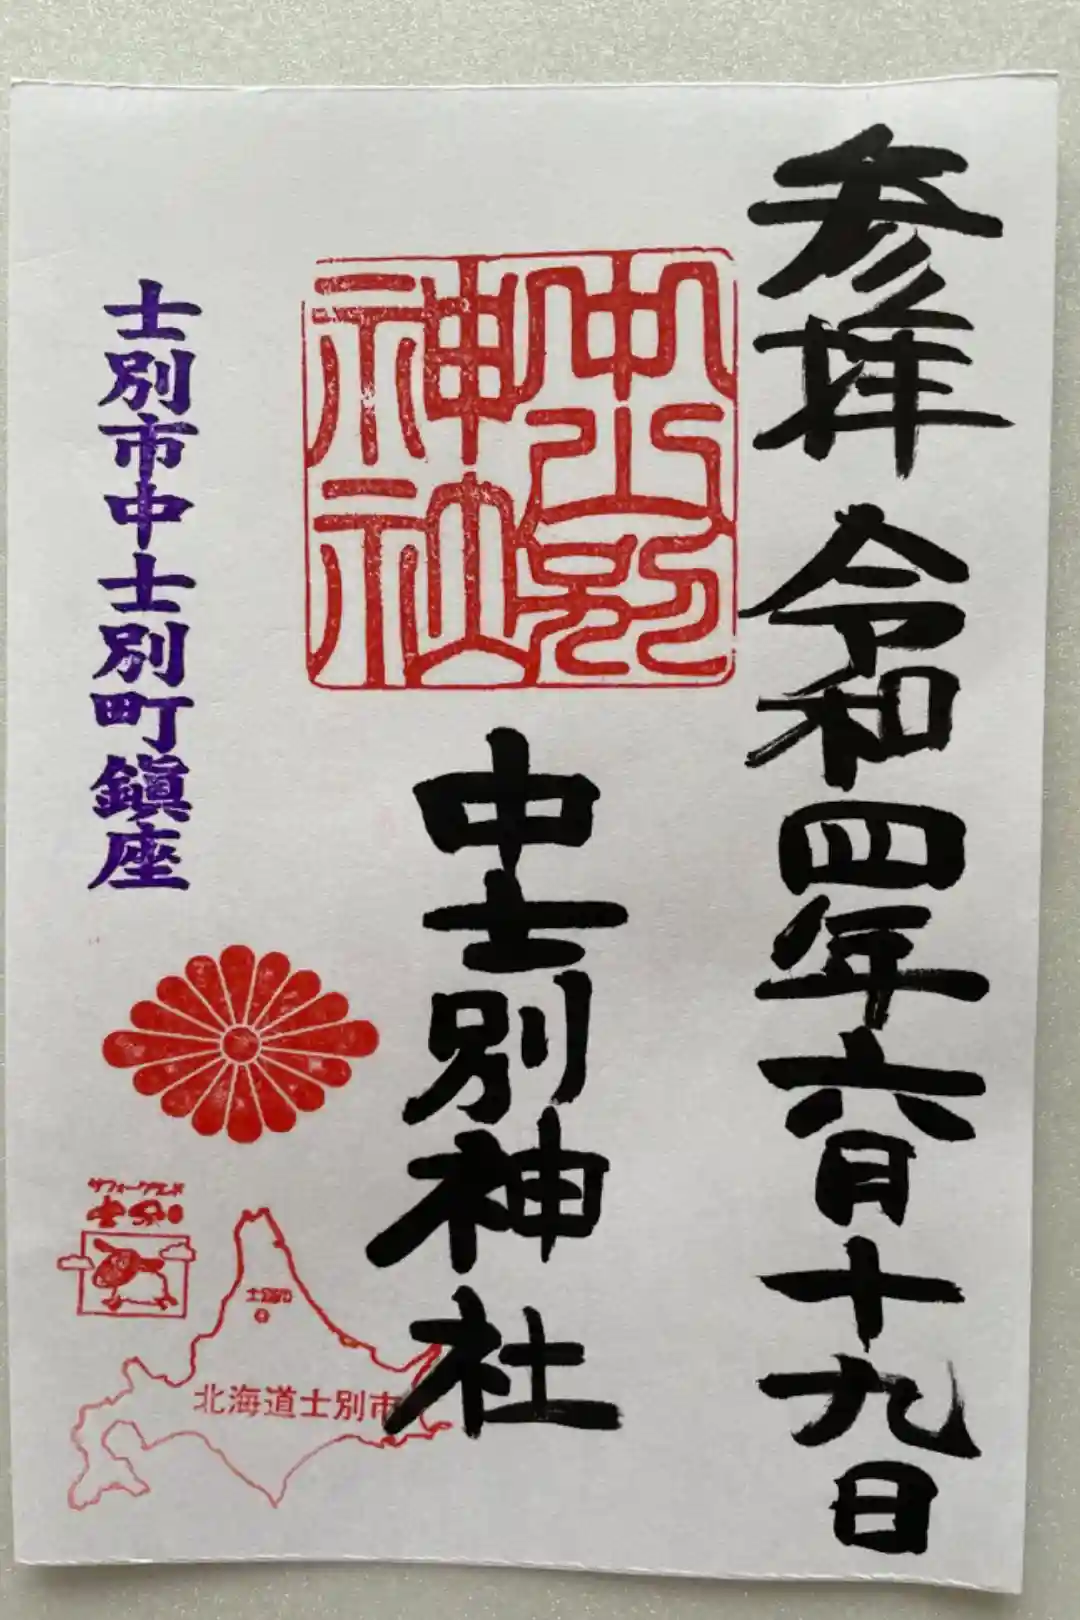 参拝 令和四年六月十九日
中士別神社
中士別
神社
士別市中士別町鎮座
サフォークランド
士別
北海道士別市